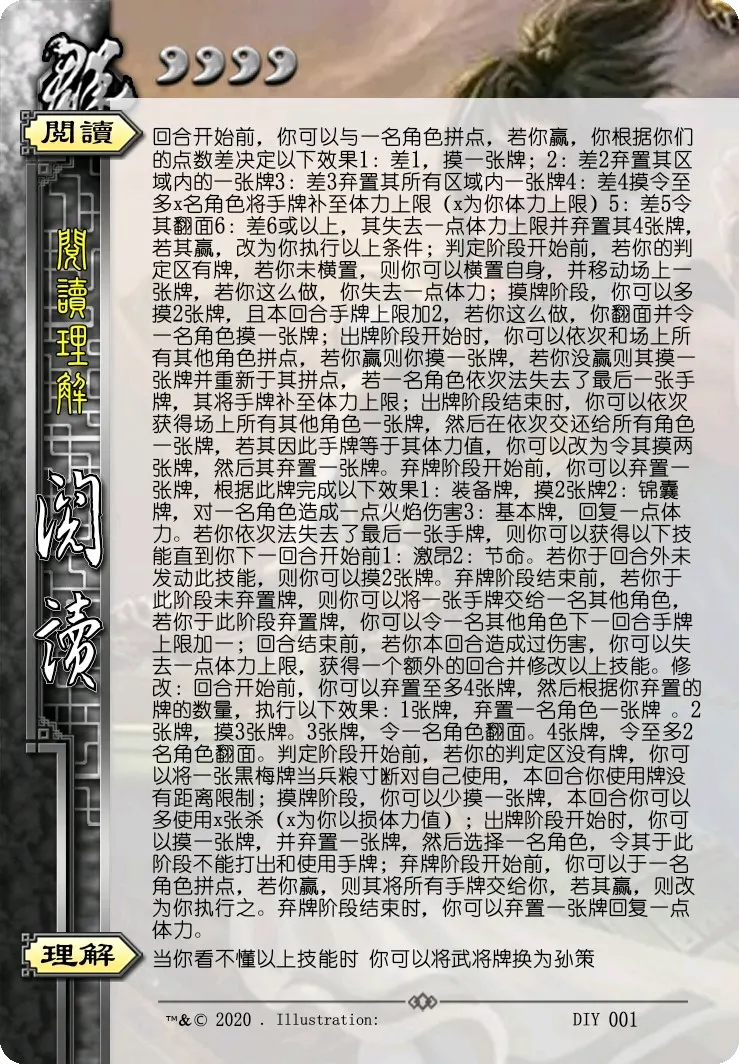 群
閲讀
回合开始前，你可以与一名角色拼点，若你赢，你根据你们
的点数差决定以下效果1：差1，摸一张牌；2：差2弃置其区
域内的一张牌3：差3弃置其所有区域内一张牌4：差4摸令至
多x名角色将手牌补至体力上限（x为你体力上限）5：差5令
其翻面6：差6或以上，其失去一点体力上限并弃置其4张牌，
若其赢，改为你执行以上条件；判定阶段开始前，若你的判
定区有牌，若你未横置，则你可以横置自身，并移动场上一
张牌，若你这么做，你失去一点体力；摸牌阶段，你可以多
摸2张牌，且本回合手牌上限加2，若你这么做，你翻面并令
一名角色摸一张牌；出牌阶段开始时，你可以依次和场上所
有其他角色拼点，若你赢则你摸一张牌，若你没赢则其摸一
张牌并重新于其拼点，若一名角色依次法失去了最后一张手
牌，其将手牌补至体力上限；出牌阶段结束时，你可以依次
获得场上所有其他角色一张牌，然后在依次交还给所有角色
一张牌，若其因此手牌等于其体力值，你可以改为令其摸两
张牌，然后其弃置一张牌。弃牌阶段开始前，你可以弃置一
张牌，根据此牌完成以下效果1：装备牌，摸2张牌2：锦囊
牌，对一名角色造成一点火焰伤害3：基本牌，回复一点体
力。若你依次法失去了最后一张手牌，则你可以获得以下技
能直到你下一回合开始前1：激昂2：节命。若你于回合外未
发动此技能，则你可以摸2张牌。弃牌阶段结束前，若你于
此阶段未弃置牌，则你可以将一张手牌交给一名其他角色，
若你于此阶段弃置牌，你可以令一名其他角色下一回合手牌
上限加一；回合结束前，若你本回合造成过伤害，你可以失
去一点体力上限，获得一个额外的回合并修改以上技能。修
改：回合开始前，你可以弃置至多4张牌，然后根据你弃置的
牌的数量，执行以下效果：1张牌，弃置一名角色一张牌 。2
张牌，摸3张牌。3张牌，令一名角色翻面。4张牌，令至多2
名角色翻面。判定阶段开始前，若你的判定区没有牌，你可
以将一张黑梅牌当兵粮寸断对自己使用，本回合你使用牌没
有距离限制；摸牌阶段，你可以少摸一张牌，本回合你可以
多使用x张杀（x为你以损体力值）；出牌阶段开始时，你可
以摸一张牌，并弃置一张牌，然后选择一名角色，令其于此
阶段不能打出和使用手牌；弃牌阶段开始前，你可以于一名
角色拼点，若你赢，则其将所有手牌交给你，若其赢，则改
为你执行之。弃牌阶段结束时，你可以弃置一张牌回复一点
体力。
閱讀理解
阅读
理解
当你看不懂以上技能时 你可以将武将牌换为孙策
™&© 2020 . Illustration:
DIY 001